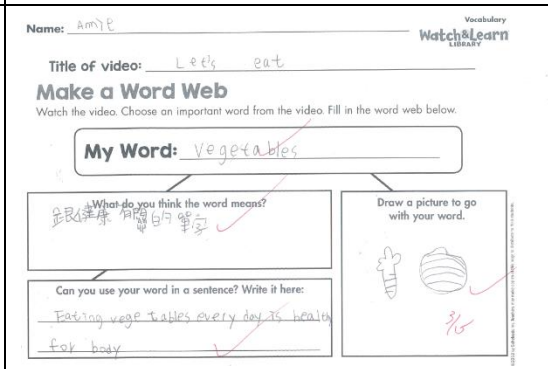 Vocabulary
Name: Amye
Watch&Learn
LIBRARY
Title of video: Let's eat
Make a Word Web
Watch the video. Choose an important word from the video. Fill in the word web below.
My Word: vegetables
What do you think the word means?
跟健康 有關的 單字
Draw a picture to go
with your word.
Can you use your word in a sentence? Write it here:
Eating vegetables every day is health
for body
3/5